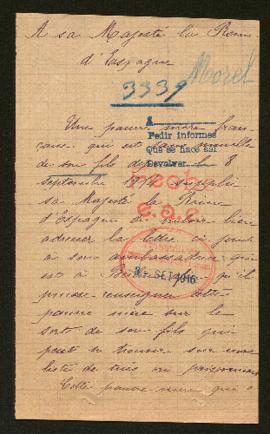 A sa Majesté la Reine
d'Espagne
Morel
3339
A
Pedir informes
Que se hace así
Devolver.
Une pauvre mère fran-
çaise, qui est sans nouvelle
de son fils depuis le 8
septembre 1914 supplie
sa Majesté la Reine
d'Espagne de vouloir bien
adresser la lettre ci jointe
à son ambassadrice qui
est à Berlin afin qu'il
puisse renseigner cette
pauvre mère sur le
sort de son fils qui
peut se trouver sur une
liste de tués ou prisonniers
Cette pauvre mère qui a
SET 1916